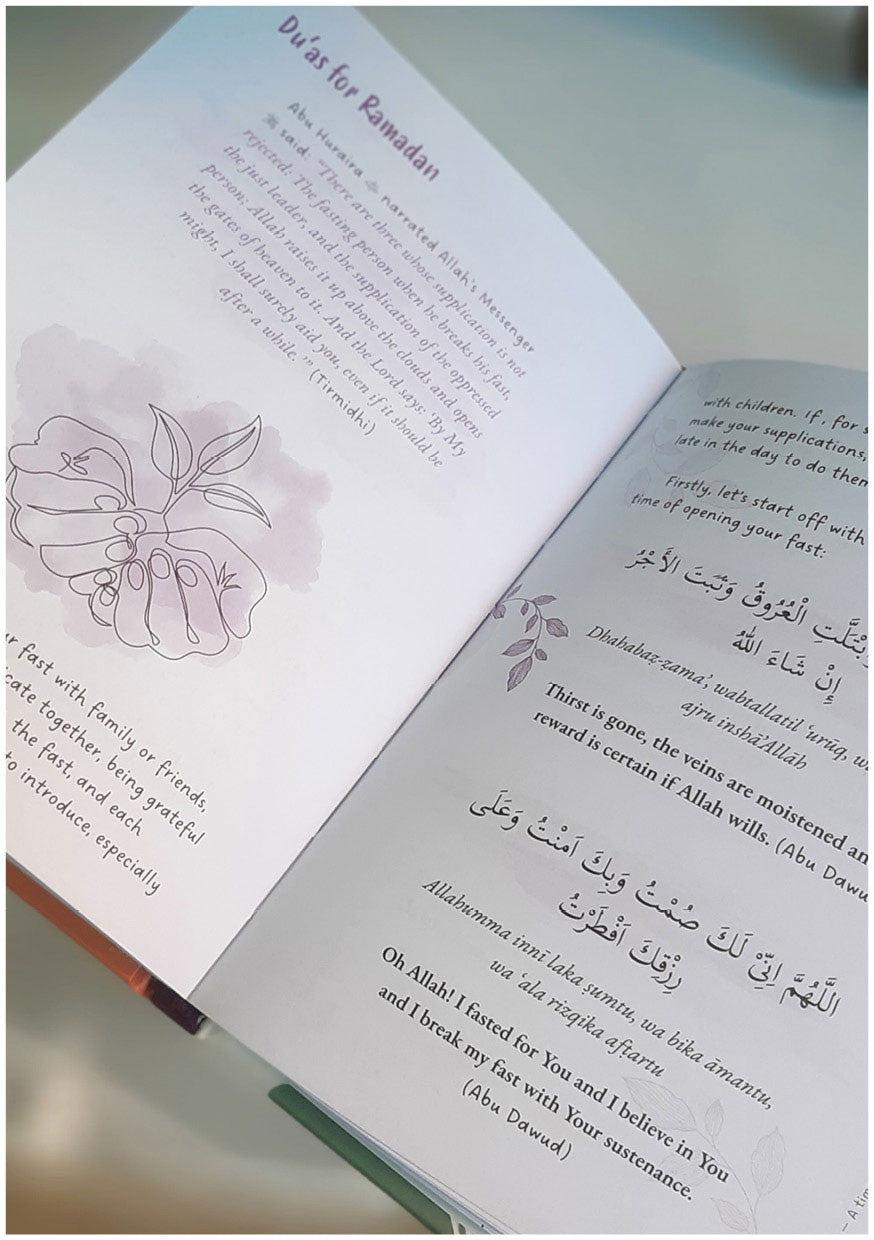 Du'as for Ramadan
Abu Huraira narrated Allah's Messenger
ﷺ said: "There are three whose supplication is not
rejected: The fasting person when he breaks his fast,
the just leader, and the supplication of the oppressed
person; Allah raises it up above the clouds and opens
the gates of heaven to it. And the Lord says: 'By My
might, I shall surely aid you, even if it should be
after a while.'" (Tirmidhi)
fast with family or friends,
together, being grateful
the fast, and each
to introduce, especially
with children. If, for
make your supplications,
late in the day to do
Firstly, let's start off with
time of opening your fast:
الْعُرُوقُ وَثَبَتَ الْأَجْرُ
إِنْ شَاءَ اللّٰهُ
Dhahabaẓ-ẓama', wabtallatil 'urūq,
ajru inshā'Allāh
Thirst is gone, the veins are moistened
reward is certain if Allah wills. (Abu
اللَّهُمَّ اِنِّىْ لَكَ صُمْتُ وَبِكَ اٰمَنْتُ وَعَلَى
رِزْقِكَ اَفْطَرْتُ
Allahumma innī laka ṣumtu, wa bika āmantu,
wa 'ala rizqika afṭartu
Oh Allah! I fasted for You and I believe in You
and I break my fast with Your sustenance.
(Abu Dawud)
— A